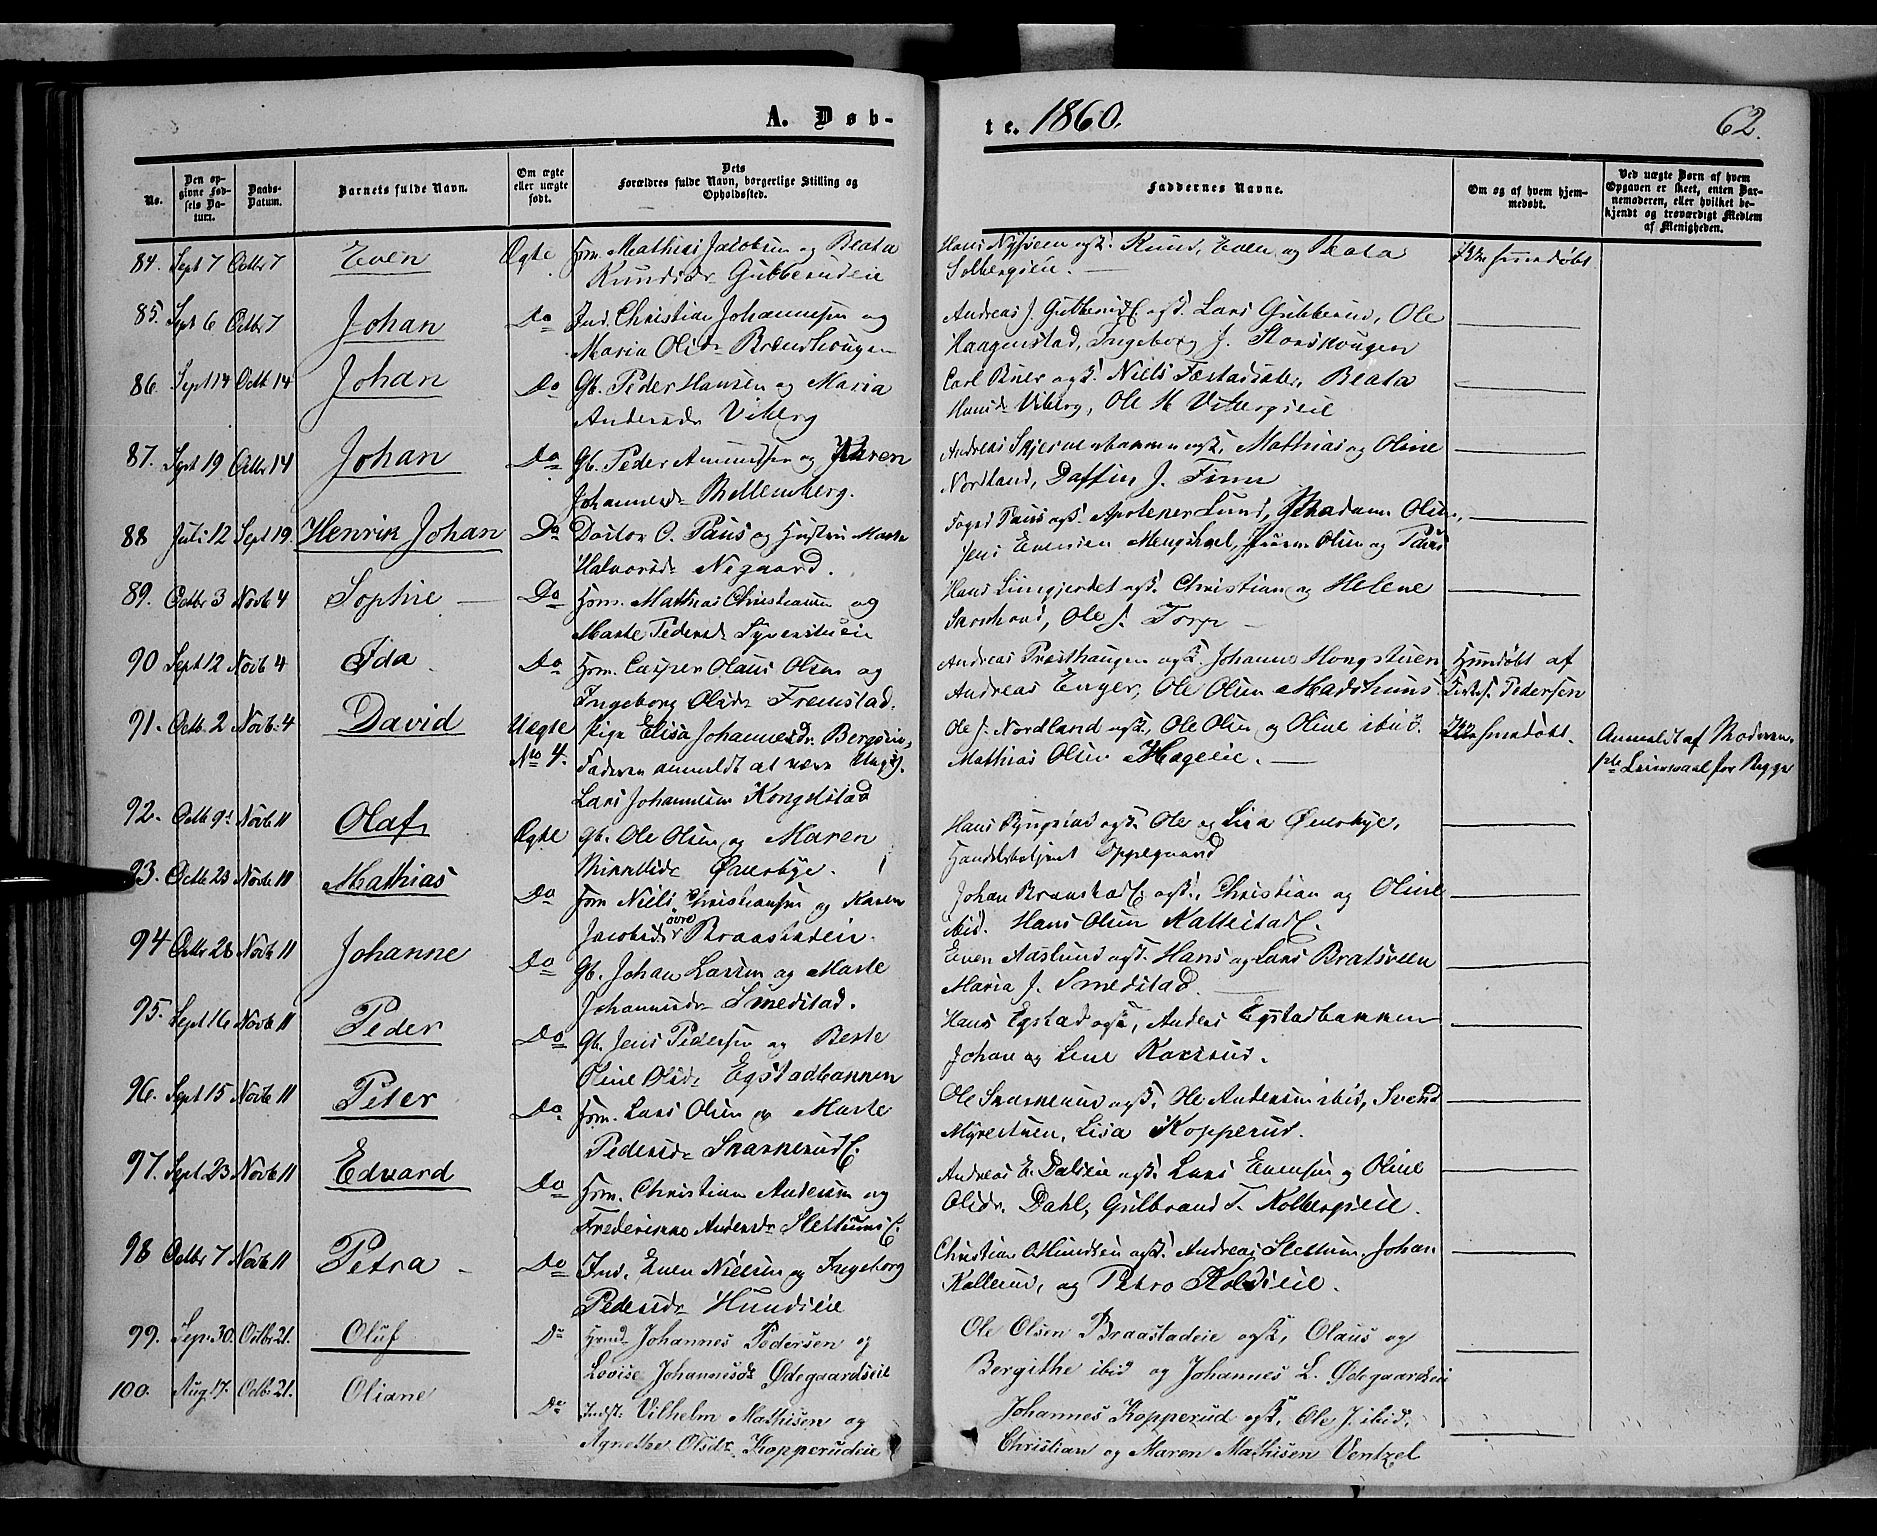 A. Døb-
te. 1860.
62.
No.
Den opgivne Fødsels Datum.
Daabs-Datum.
Barnets fulde Navn.
Om ægte eller uægte født.
Dets Forældres fulde Navn, borgerlige Stilling og Opholdssted.
Faddernes Navne.
Om og af hvem hjemmedøbt.
Ved uægte Børn af hvem Opgaven er skeet, enten Barnemoderen, eller hvilket bekjendt og troværdigt Medlem af Menigheden.
84. Sept 7 Octbr 7 Even Ægte Hsm. Mathias Jacobsen og Beata
Knudsdr Gubberudeie
Knud, Even og Beata
Solbergseie.
85. Sept 6 Octbr 7 Johan Do Ind. Christian Johannesen og
Maria Olsdr
Andreas J. Gubberud ogst. Lars Gubberud, Ole
Haagenstad, Ingeborg J.
86. Sept 14 Octb 14 Johan Do Gb. Peder Hansen og Maria
Andersdr Viberg
Carl Buer ogst. Niels Beata
Hansdr Viberg, Ole H. Vibergseie
87. Sept 19 Octbr 14 Johan Do Gb. Peder Amundsen og Karen
Johannesdr
Andreas ogst. Mathias og Oline
Nordland, J. Finn
88 Juli 12 Sept 19. Henrik Johan Do Doctor O. Paus og Hustru Marthe
Halvorsdr Nigaard.
Foged Paus ogst. Apoteker Lund, Madam Olsen,
Jens Evensen Mengshoel, Olsen og Paus
89. Octbr 3 Novb 4 Sophie Do Hsm. Mathias Christiansen og
Marte Pedersdr
Hans ogst. Christian og Helene
Ole J. Torp
90 Sept 12 Novb 4 Ida Do Hsm. Casper Olaus Olsen og
Ingeborg Olsdr Fremstad.
Andreas Præsthaugen ogst. Johannes
Andreas Enger, Ole Olsen Madshuus
Hjemdøbt af
Pedersen
91. Octb. 2 Novb. 4 David Uægte
No 4.
Pige Elisa Johannesdr.
Faderen anmeldt at være Ungk.
Lars Johannesen Kongelstad
Ole J. Nordland ogst, Ole Olsen og Oline ibid.
Mathias Olsen Hageeie.
Ikke hjemdøbt.
Anmeldt af Moderen.
1ste Leiermaal for Begge
92. Novb 11 Olaf Ægte Gb. Ole Olsen og Maren
Øverbye.
ogst. Ole og Lisa Øverbye,
Handelsbetjent Oppegaard
93. Octb 23 Novb 11 Mathias Do Hsm Niels Christiansen og Karen
Jacobsdr øvre Braastadeie.
Johan Braastad ogst., Christian og Oline
ibid. Hans Olsen Kallestad.
94 Octbr 28 Novb 11 Johanne Do Gb. Johan Larsen og Marte
Johannesdr Smedstad.
Even Aaslund ogst. Hans og Lars Bratsveen
Maria J. Smedstad.
95. Sept 16 Novb 11 Peder Do Gb. Jens Pedersen og Berte
Oline Olsdr Egstadbakken
Hans Egstad ogst, Anders Egstadbakken
Johan og Lene
96. Sept 15 Novb 11 Peter Do Hsm. Lars Olsen og Marte
Pedersdr Skarkerud.
Ole Skarkerud ogst, Ole Andersen ibid, Svend
Myrestuen, Lisa Kopperud.
97. Sept. 23 Novb 11 Edvard Do Hsm. Christian Andersen og
Frederikke Andersdr Slettum.
Andreas E. ogst. Lars Evensen og Oline
Olsdr. Dahl, Gulbrand T. Kolbergseie.
98 Octbr 7 Novb 11 Petra Do Ind. Even Nielsen og Ingeborg
Pedersdr Hundseie
Christian ogst. Andreas Slettum, Johan
Kollerud, og Petro
99. Sep. 30. Octbr 21. Oluf Do Hsmd. Johannes Pedersen og
Lovise Johannesdr Ødegaardseie
Ole Olsen Braastadeie ogst, Olaus og
Bergithe ibid og Johannes L. Ødegaardseie
100. Aug. 17. Octbr. 21. Oliane Do Indst. Vilhelm Mathisen og
Agnethe Olsdr Kopperudeie
Johannes Kopperud ogst, Ole J. ibid,
Christian og Maren Mathisen Ventzel